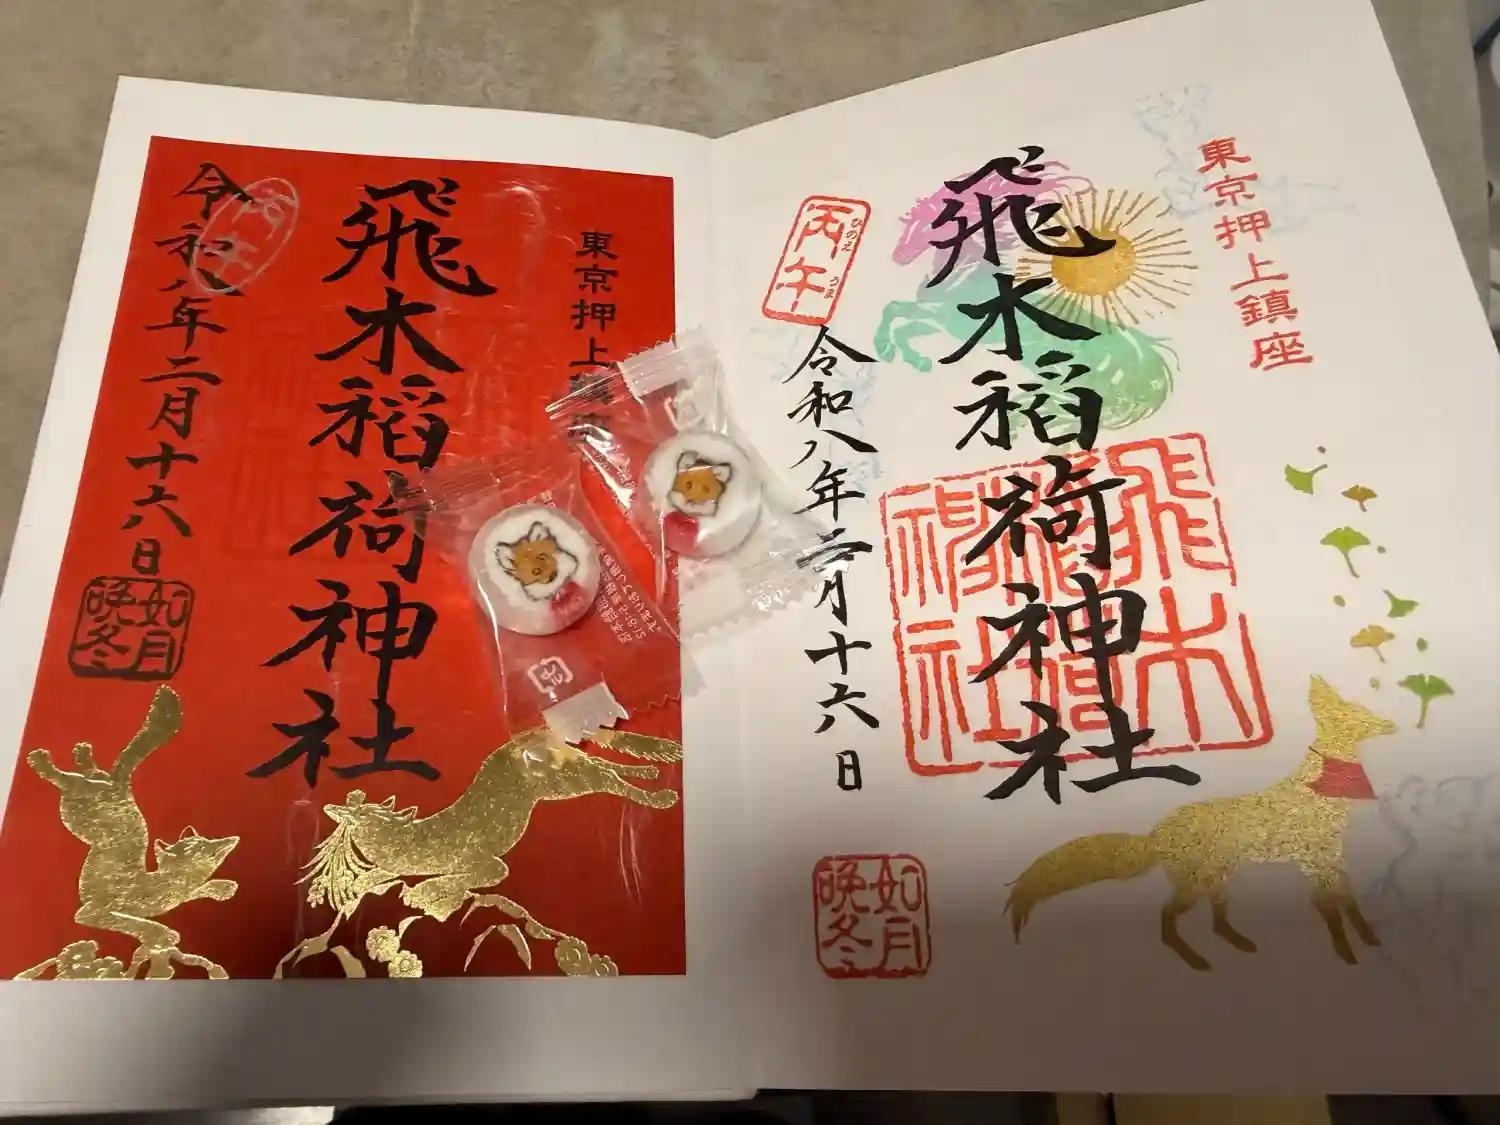 東京押上鎮座
丙午
ひのえ
うま
飛木稲荷神社
飛木稲荷神社
令和八年二月十六日
如月
晩冬
東京押上鎮座
飛木稲荷神社
丙午
令和八年二月十六日
如月
晩冬